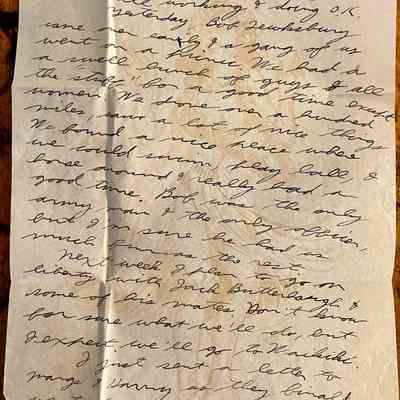 still working & doing O.K.
Yesterday Bob Tewksbury
came over early & a gang of us
went on a picnic. We had a
a swell bunch of guys & all
the stuff for a good time except
women. We drove over a hundred
miles, saw a lot of nice things
We found a nice place where
we could swim, play ball, &
horse around & really had a
good time. Bob was the only
army man & the only officer,
but I'm sure he had as
much fun as the rest.
Next week I plan to go on
liberty with Jack Butterbaugh &
some of his mates. Don't know
for sure what we'll do, but
I expect we'll go to Waikiki.
I just sent a letter to
Marge & Harry as they